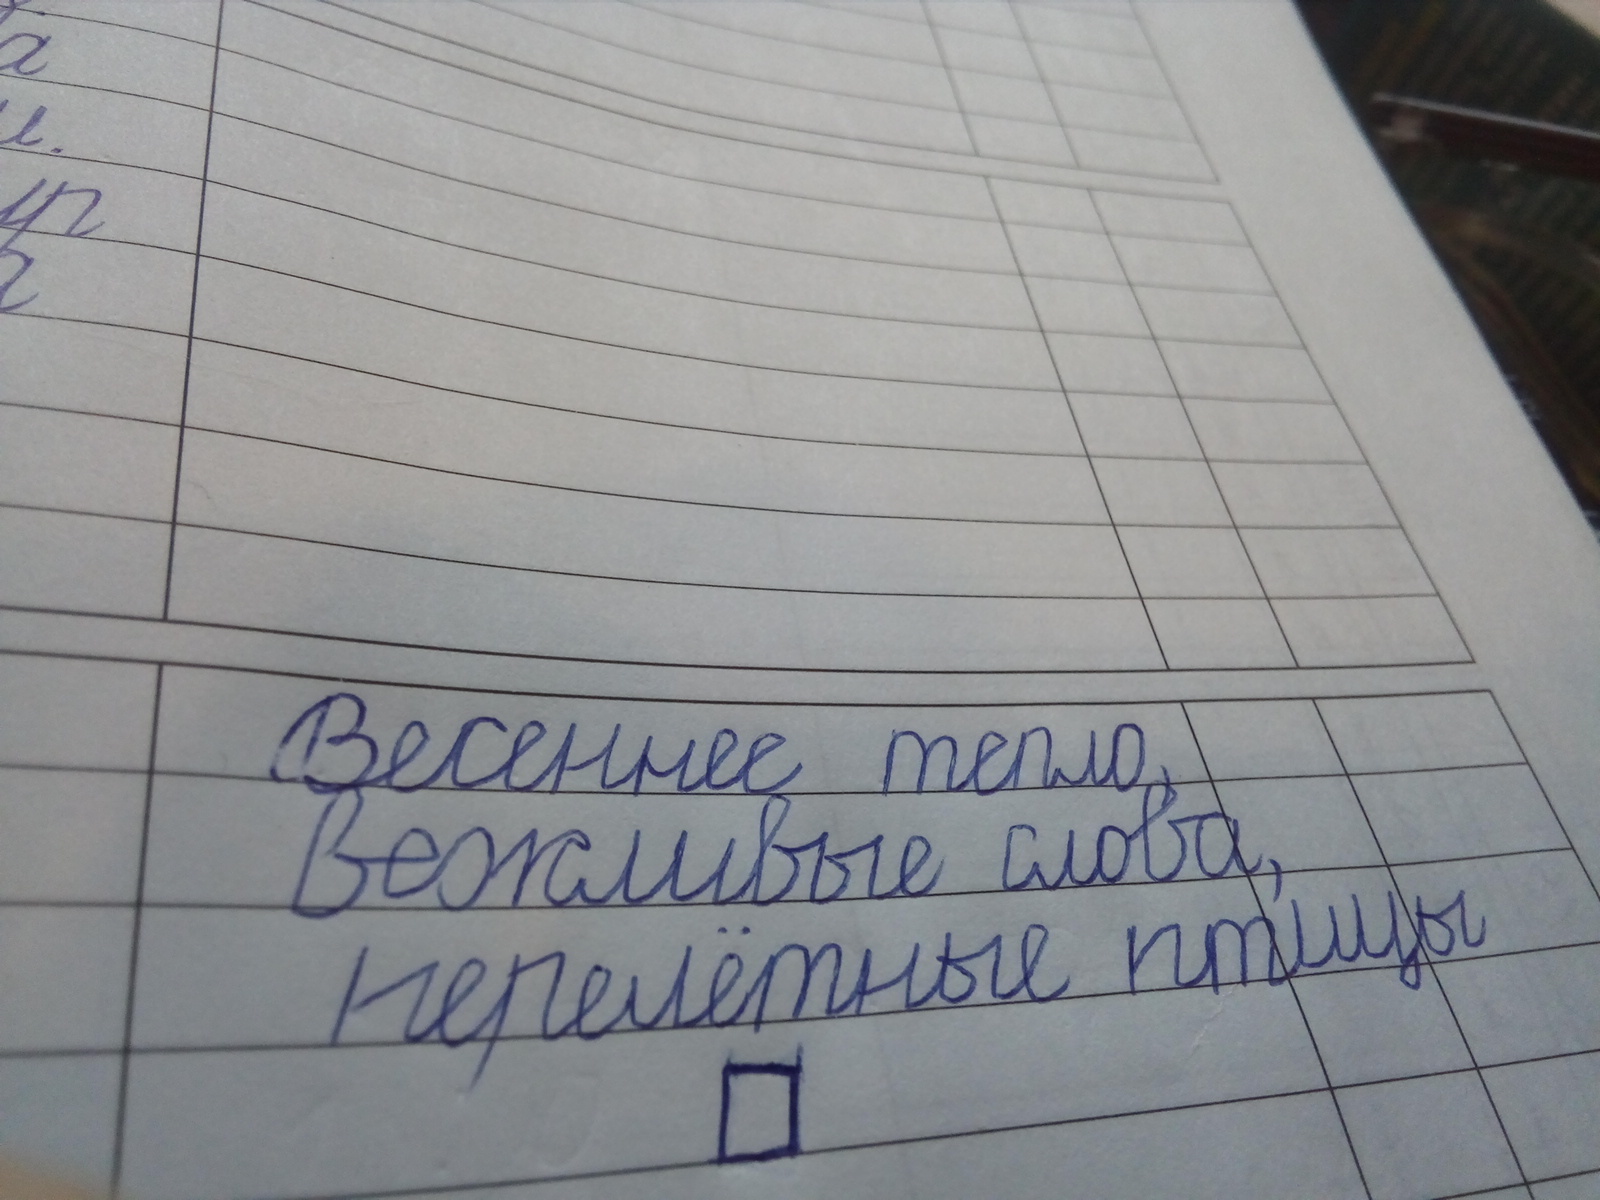 Весеннее тепло,
Вежливые слова,
перелётные птицы